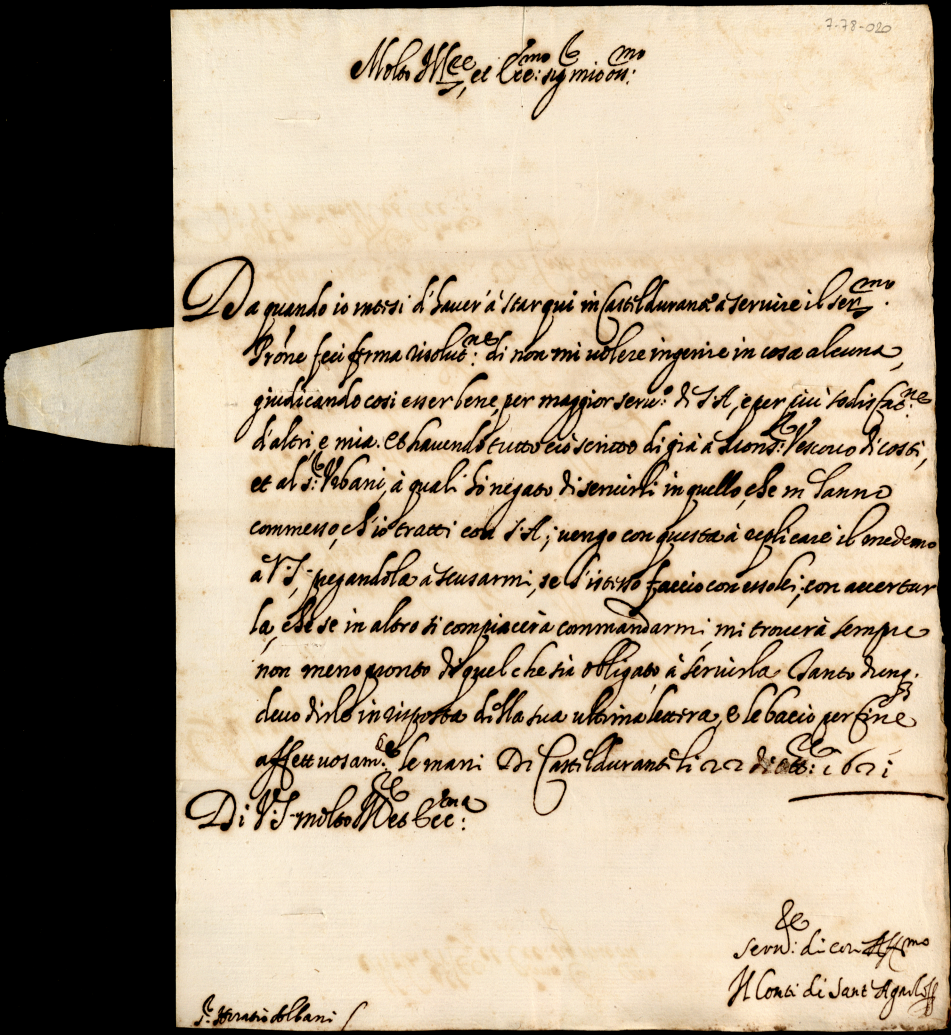 7-78-020
Molto Ill.re et Ecc.mo sig.r mio oss.mo
Da quando io intesi d'haver à star qui in Casteldurante à servire il ser.mo
Pr̃one feci firma risolut.ne di non mi volere ingerire in cosa alcuna,
giudicando cosi esser bene, per maggior serv.o di S.A, e per più sodisfat.ne
d'altri, e mia. et havendo tutto ciò scritto di già à Mons.r Vescovo di costì,
et al S.r Urbani, à quali hò negato di servirli in quello, che m'hanno
commesso, ch'io tratti con S.A; vengo con questa à replicare il medemo
a V.S. pregandola à scusarmi, se l'istesso faccio con essolei; con accertar
la, che se in altro si compiacerà commandarmi, mi troverà sempre
non meno pronto di quel che sia obligato à servirla Tanto dunq.
devo dirle in risposta della sua ultima lettera, e le bacio per fine
affettuosam.te le mani Di Casteldurante li 22 di ott.re 1621
Di V.S. molto Ill.re et Ecc.ma
Serv.re di cor Aff.mo
Il Conte di Sant'Agata
S.r Horatio Albani